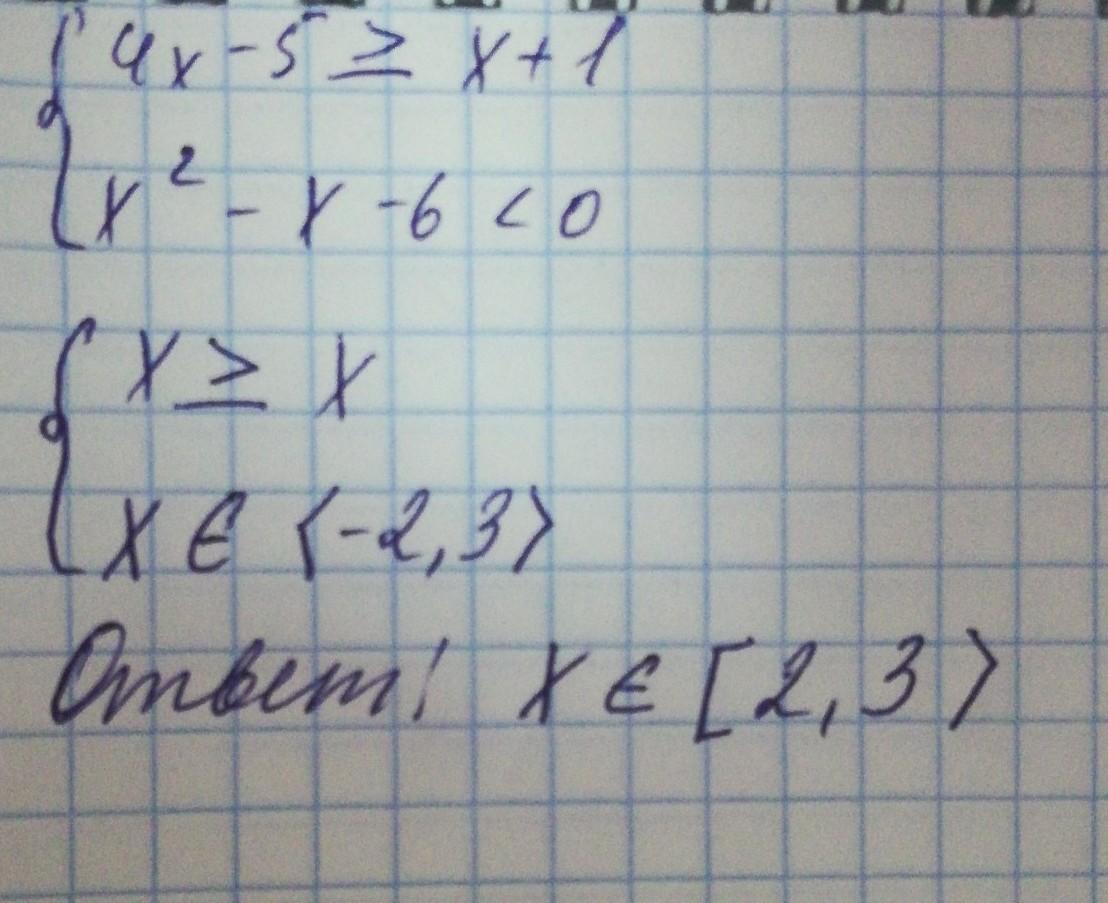 4x-5 ≥ x+1
x² - x -6 < 0
x ≥ x
x ∈ ⟨-2,3⟩
Ответ! x ∈ [2,3⟩